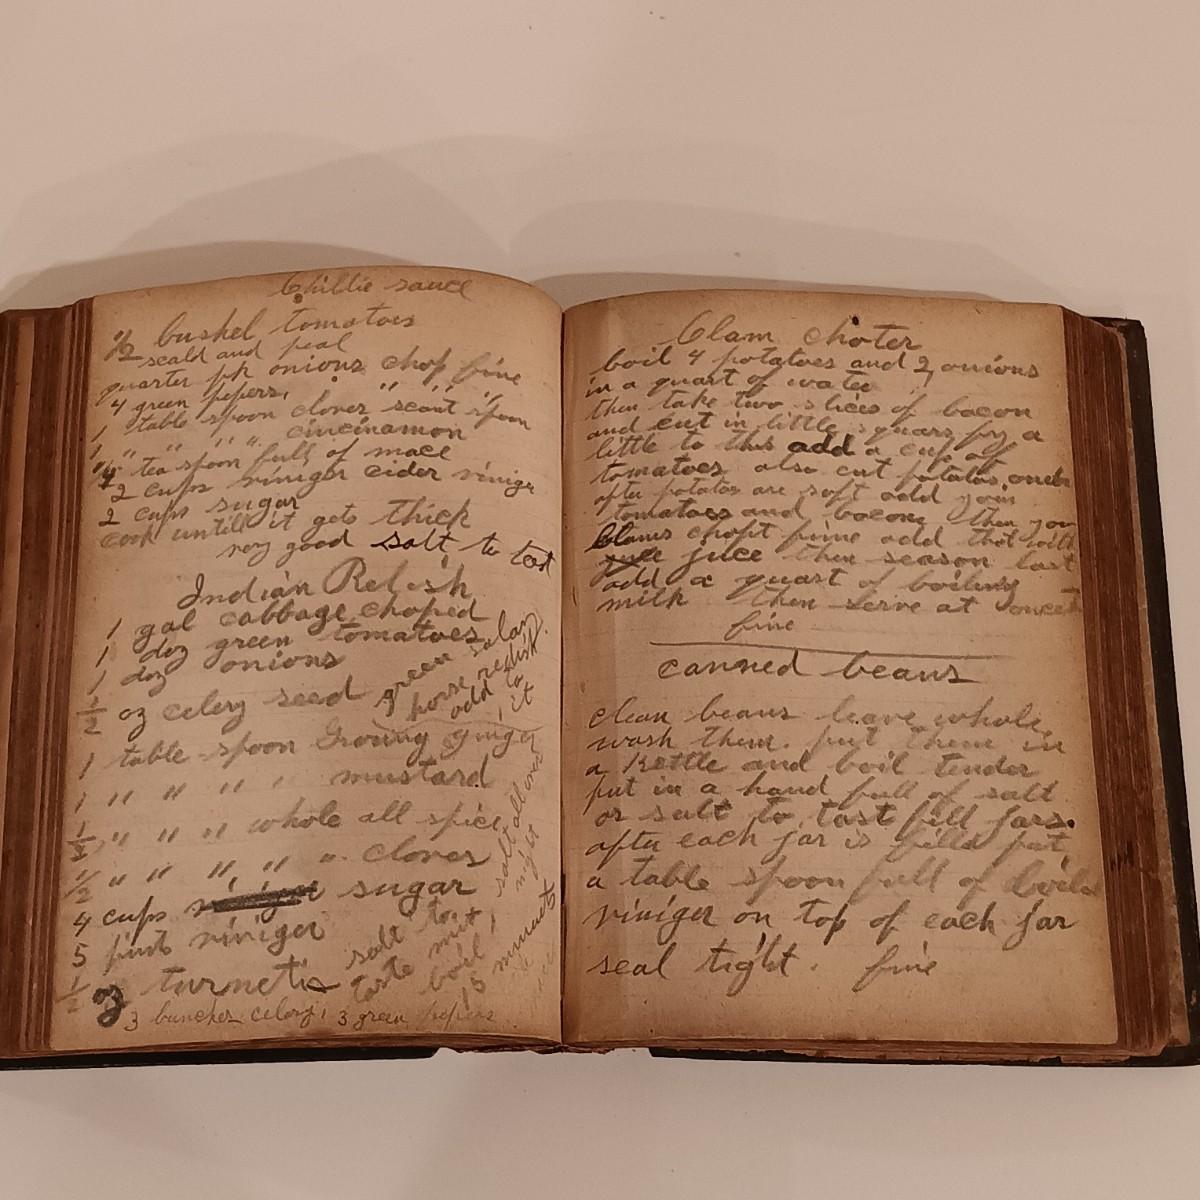 Chillie sauce
1/2 bushel tomatoes
scald and peal
quarter pk onions chop fine
4 green pepers, " "
1 table spoon cloves scant spoon
1 " " " cincinamon
1/4 tea spoon full of mace
2 cups viniger cider viniger
2 cups sugar
cook untill it gets thick
very good salt to tast
Indian Relish
1 gal cabbage choped
1 doz green tomatoes
1 doz onions
1/2 oz celery seed
green
horse redish
add to it
1 table spoon Groung ginger
1 " " " " mustard
1/2 " " " whole all spice
1/2 " " " " " cloves
4 cups sugar
5 pints viniger
1/2 oz turmeti
salt to
taste mix
boil
15 minuets
salt all over
night
3 bunches celery, 3 green pepers
Clam choter
boil 4 potatoes and 2 onions
in a quart of water
then take two slices of bacon
and cut in little squars fry a
little to this add a cup of
tomatoes also cut potatos
after potatos are soft add your
tomatoes and bacon then your
Clams chopt fine add that with
juce then season last
add a quart of boiling
milk then serve at once
fine
canned beans
clean beans leave whole,
wash them. put them in
a kettle and boil tender
put in a hand full of salt
or salt to tast fill jars.
after each jar is filld put
a table spoon full of
viniger on top of each jar
seal tight. fine